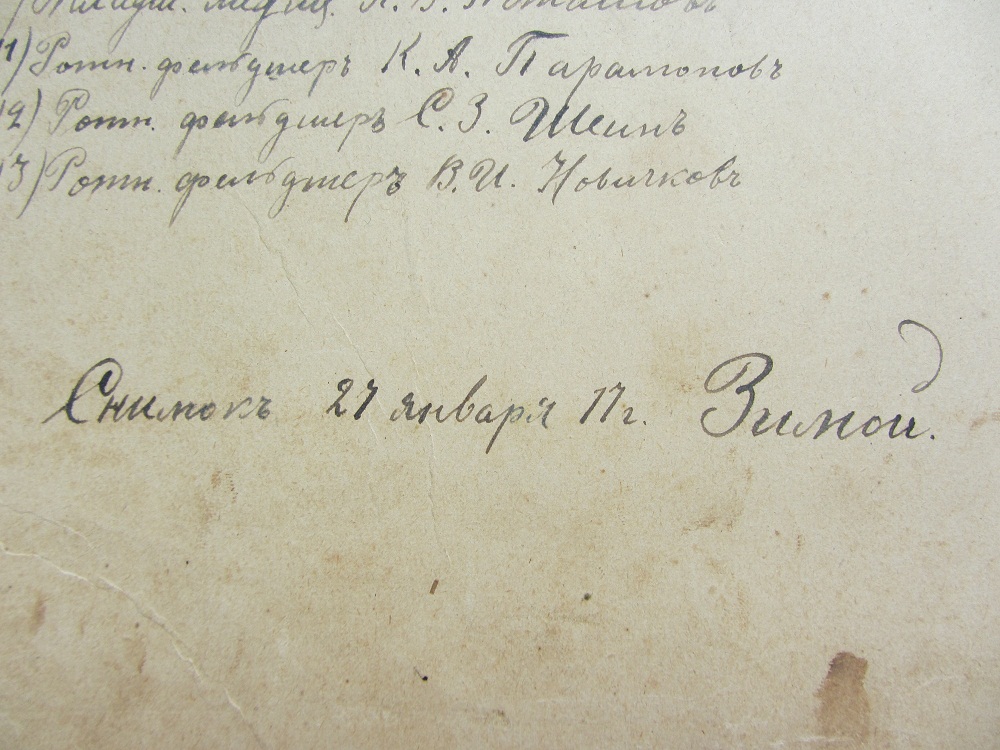 Младш. медиц.
11) Ротн. фельдшеръ К. А. Парамоновъ
12) Ротн. фельдшеръ С. З. Шеинъ
13) Ротн. фельдшеръ В. И. Новичковъ
Снимокъ 27 января 17 г. Зимой.